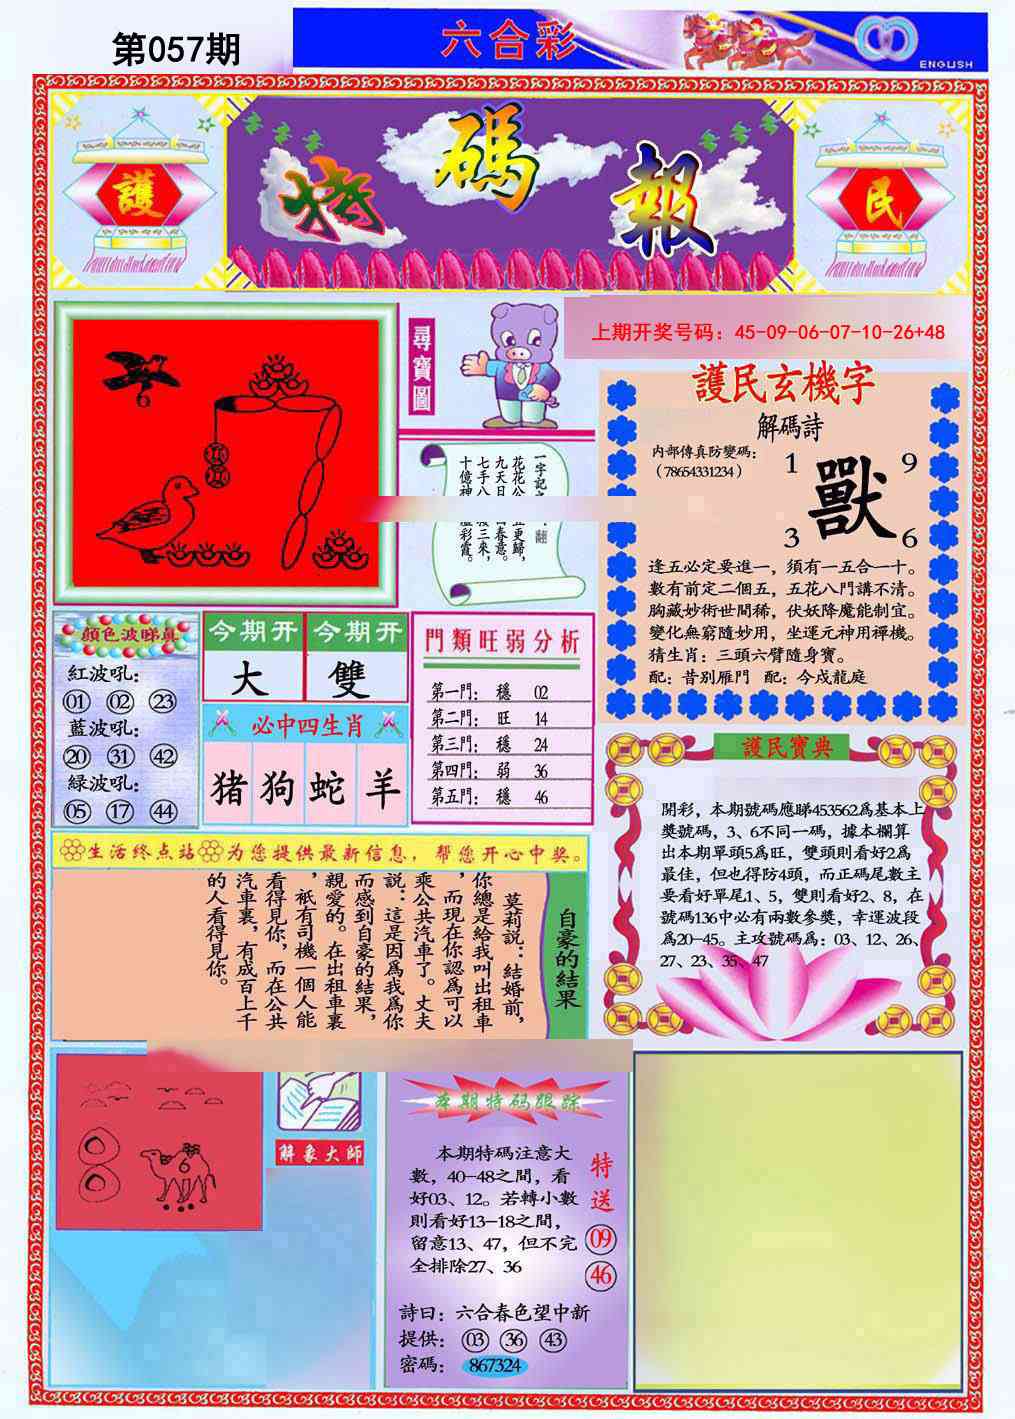 第057期
六合彩
ENGLISH
護
特碼報
民
6
尋寶圖
上期开奖号码：45-09-06-07-10-26+48
護民玄機字
解碼詩
内部傳真防變碼：
（78654331234）
1 9
獸
3 6
逢五必定要進一，須有一五合一十。
數有前定二個五，五花八門講不清。
胸藏妙術世間稀，伏妖降魔能制宜。
變化無窮隨妙用，坐運元神用禪機。
猜生肖：三頭六臂隨身寶。
配：昔别雁門 配：今戍龍庭
一字記
花花公 更歸，
九天日 春意。
七手八 三來，
十億神 彩霞。
顔色波睇真
紅波吼：
01 02 23
藍波吼：
20 31 42
緑波吼：
05 17 44
今期开 今期开
大 雙
必中四生肖
猪 狗 蛇 羊
門類旺弱分析
第一門： 穩 02
第二門： 旺 14
第三門： 穩 24
第四門： 弱 36
第五門： 穩 46
護民寶典
開彩，本期號碼應睇453562爲基本上
獎號碼，3、6不同一碼，據本欄算
出本期單頭5爲旺，雙頭則看好2爲
最佳，但也得防4頭，而正碼尾數主
要看好單尾1、5，雙則看好2、8，在
號碼136中必有兩數參獎，幸運波段
爲20-45。主攻號碼爲：03、12、26、
27、23、35、47
生活终点站 为您提供最新信息，帮您开心中奖。
自豪的結果
莫莉説：結婚前，
你總是給我叫出租車
，而現在你認爲可以
乘公共汽車了。丈夫
説：這是因爲我爲你
而感到自豪的結果，
親愛的。在出租車裏
，衹有司機一個人能
看得見你，而在公共
汽車裏，有成百上千
的人看得見你。
6
解象大師
本期特码跟踪
本期特碼注意大
數，40-48之間，看
好03、12。若轉小數
則看好13-18之間，
留意13、47，但不完
全排除27、36
特送
09
46
詩曰：六合春色望中新
提供： 03 36 43
密碼： 867324